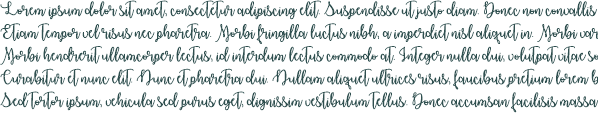 Lorem ipsum dolor sit amet, consectetur adipiscing elit. Suspendisse ut justo diam. Donec non convallis
Etiam tempor vel risus nec pharetra. Morbi fringilla luctus nibh, a imperdiet nisl aliquet in. Morbi var
Morbi hendrerit ullamcorper lectus, id interdum lectus commodo at. Integer nulla dui, volutpat vitae so
Curabitur et nunc elit. Nunc et pharetra dui. Nullam aliquet ultrices risus, faucibus pretium lorem b
Sed tortor ipsum, vehicula sed purus eget, dignissim vestibulum tellus. Donec accumsan facilisis massa